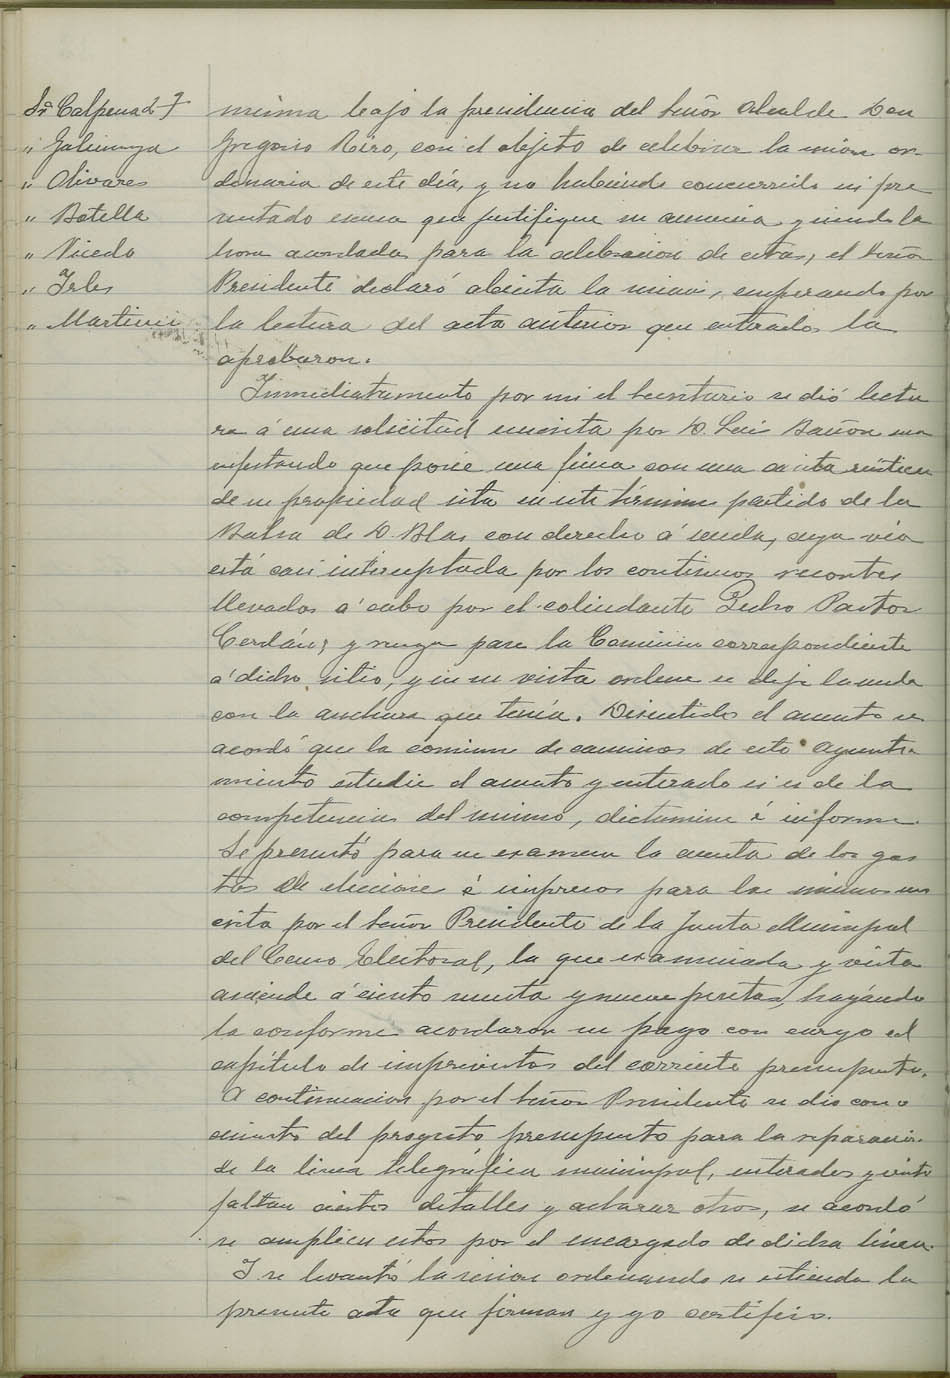 Sr. Calpena d. J.
" Galiemnya
" Olivares
" Botella
" Nicedo
" Irles
" Martinez
misma bajo la presidencia del Señor Alcalde Don
Gregorio Rizo, con el objeto de celebrar la sesion or-
dinaria de este día, y no habiendo concurrido ni pre
sentado escusa que justifique su ausencia y siendo la
hora acordada para la celebracion de estas, el Señor
Presidente declaró abierta la sesion, empezando por
la lectura del acta anterior que enterados la
aprobaron.
Immediatamente por mi el Secretario se dió lectu
ra á una solicitud suscrita por D. Luis Bañon ma
nifestando que posée una finca con una casita rústica
de su propiedad sita en este término partido de la
Balsa de D. Blas con derecho á senda, cuya via
está casi interruptada por los continuos recortes
llevados á cabo por el colindante Pedro Pastor
Cerdán; y ruega pase la Comision correspondiente
á dicho sitio, y en su vista ordene se deje la senda
con la anchura que tenía. Discutido el asunto se
acordó que la comision de caminos de este Ayunta
miento estudie el asunto y enterado si es de la
competencia del mismo, dictamine é informe.
Se presentó para su examen la cuenta de los gas
tos de elecciones é impresos para las mismas sus
crita por el Señor Presidente de la Junta Municipal
del Censo Electoral, la que examinada y vista
asciende á ciento sesenta y nueve pesetas, hayándo
la conforme acordaron su pago con cargo al
capítulo de imprevistos del corriente presupuesto.
A continuacion por el Señor Presidente se dio cono
cimiento del proyecto presupuesto para la reparacion
de la linea telegráfica municipal, enterados y visto
faltan ciertos detalles y aclarar otros, se acordó
se amplien estos por el encargado de dicha linea.
Y se levantó la sesion ordenando se estienda la
presente acta que firman y yo certifico.